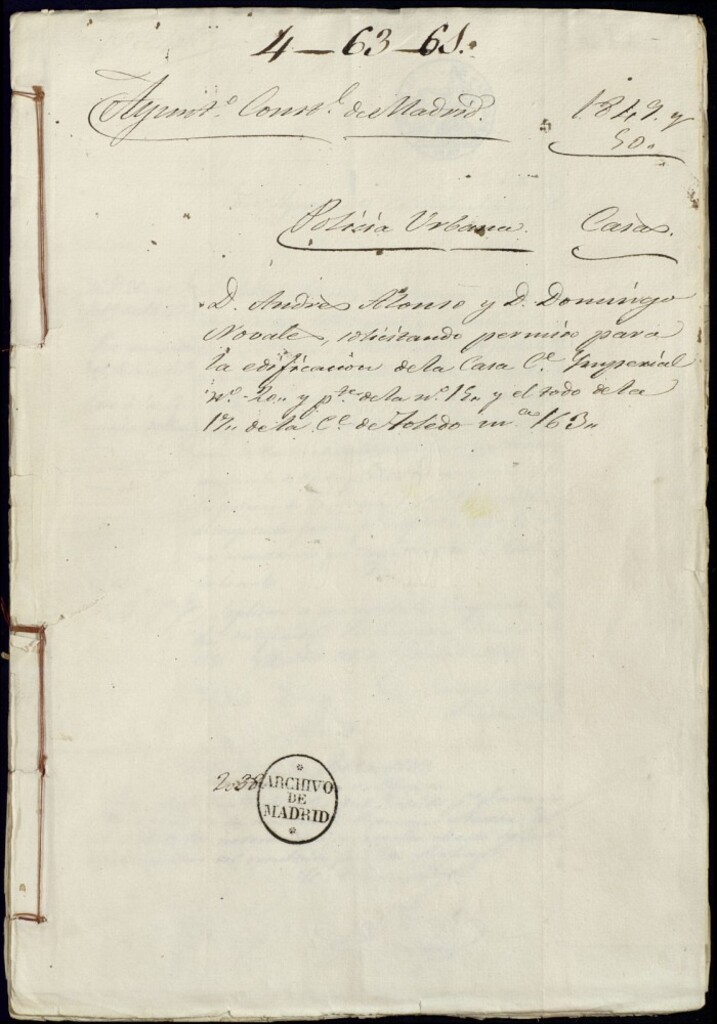 4 — 63 — 61.
Ayunt.º Const.l de Madrid. 1849. y
50.
Policia Urbana. Casas.
D. Andres Alonso y D. Domingo
Novales, solicitando permiso para
la edificacion de la Casa C.e Imperial
n.º 20,, y p.te de la n.º 15,, y el todo de la
17,, de la C.e de Toledo m.na 163,,
ARCHIVO
DE
MADRID